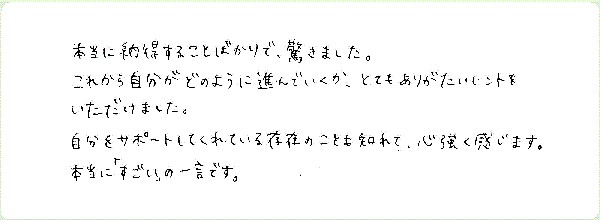 本当に納得することばかりで、驚きました。
これから自分がどのように進んでいくか、とてもありがたいヒントを
いただけました。
自分をサポートしてくれている存在のことも知れて、心強く感じます。
本当に「すごい」の一言です。